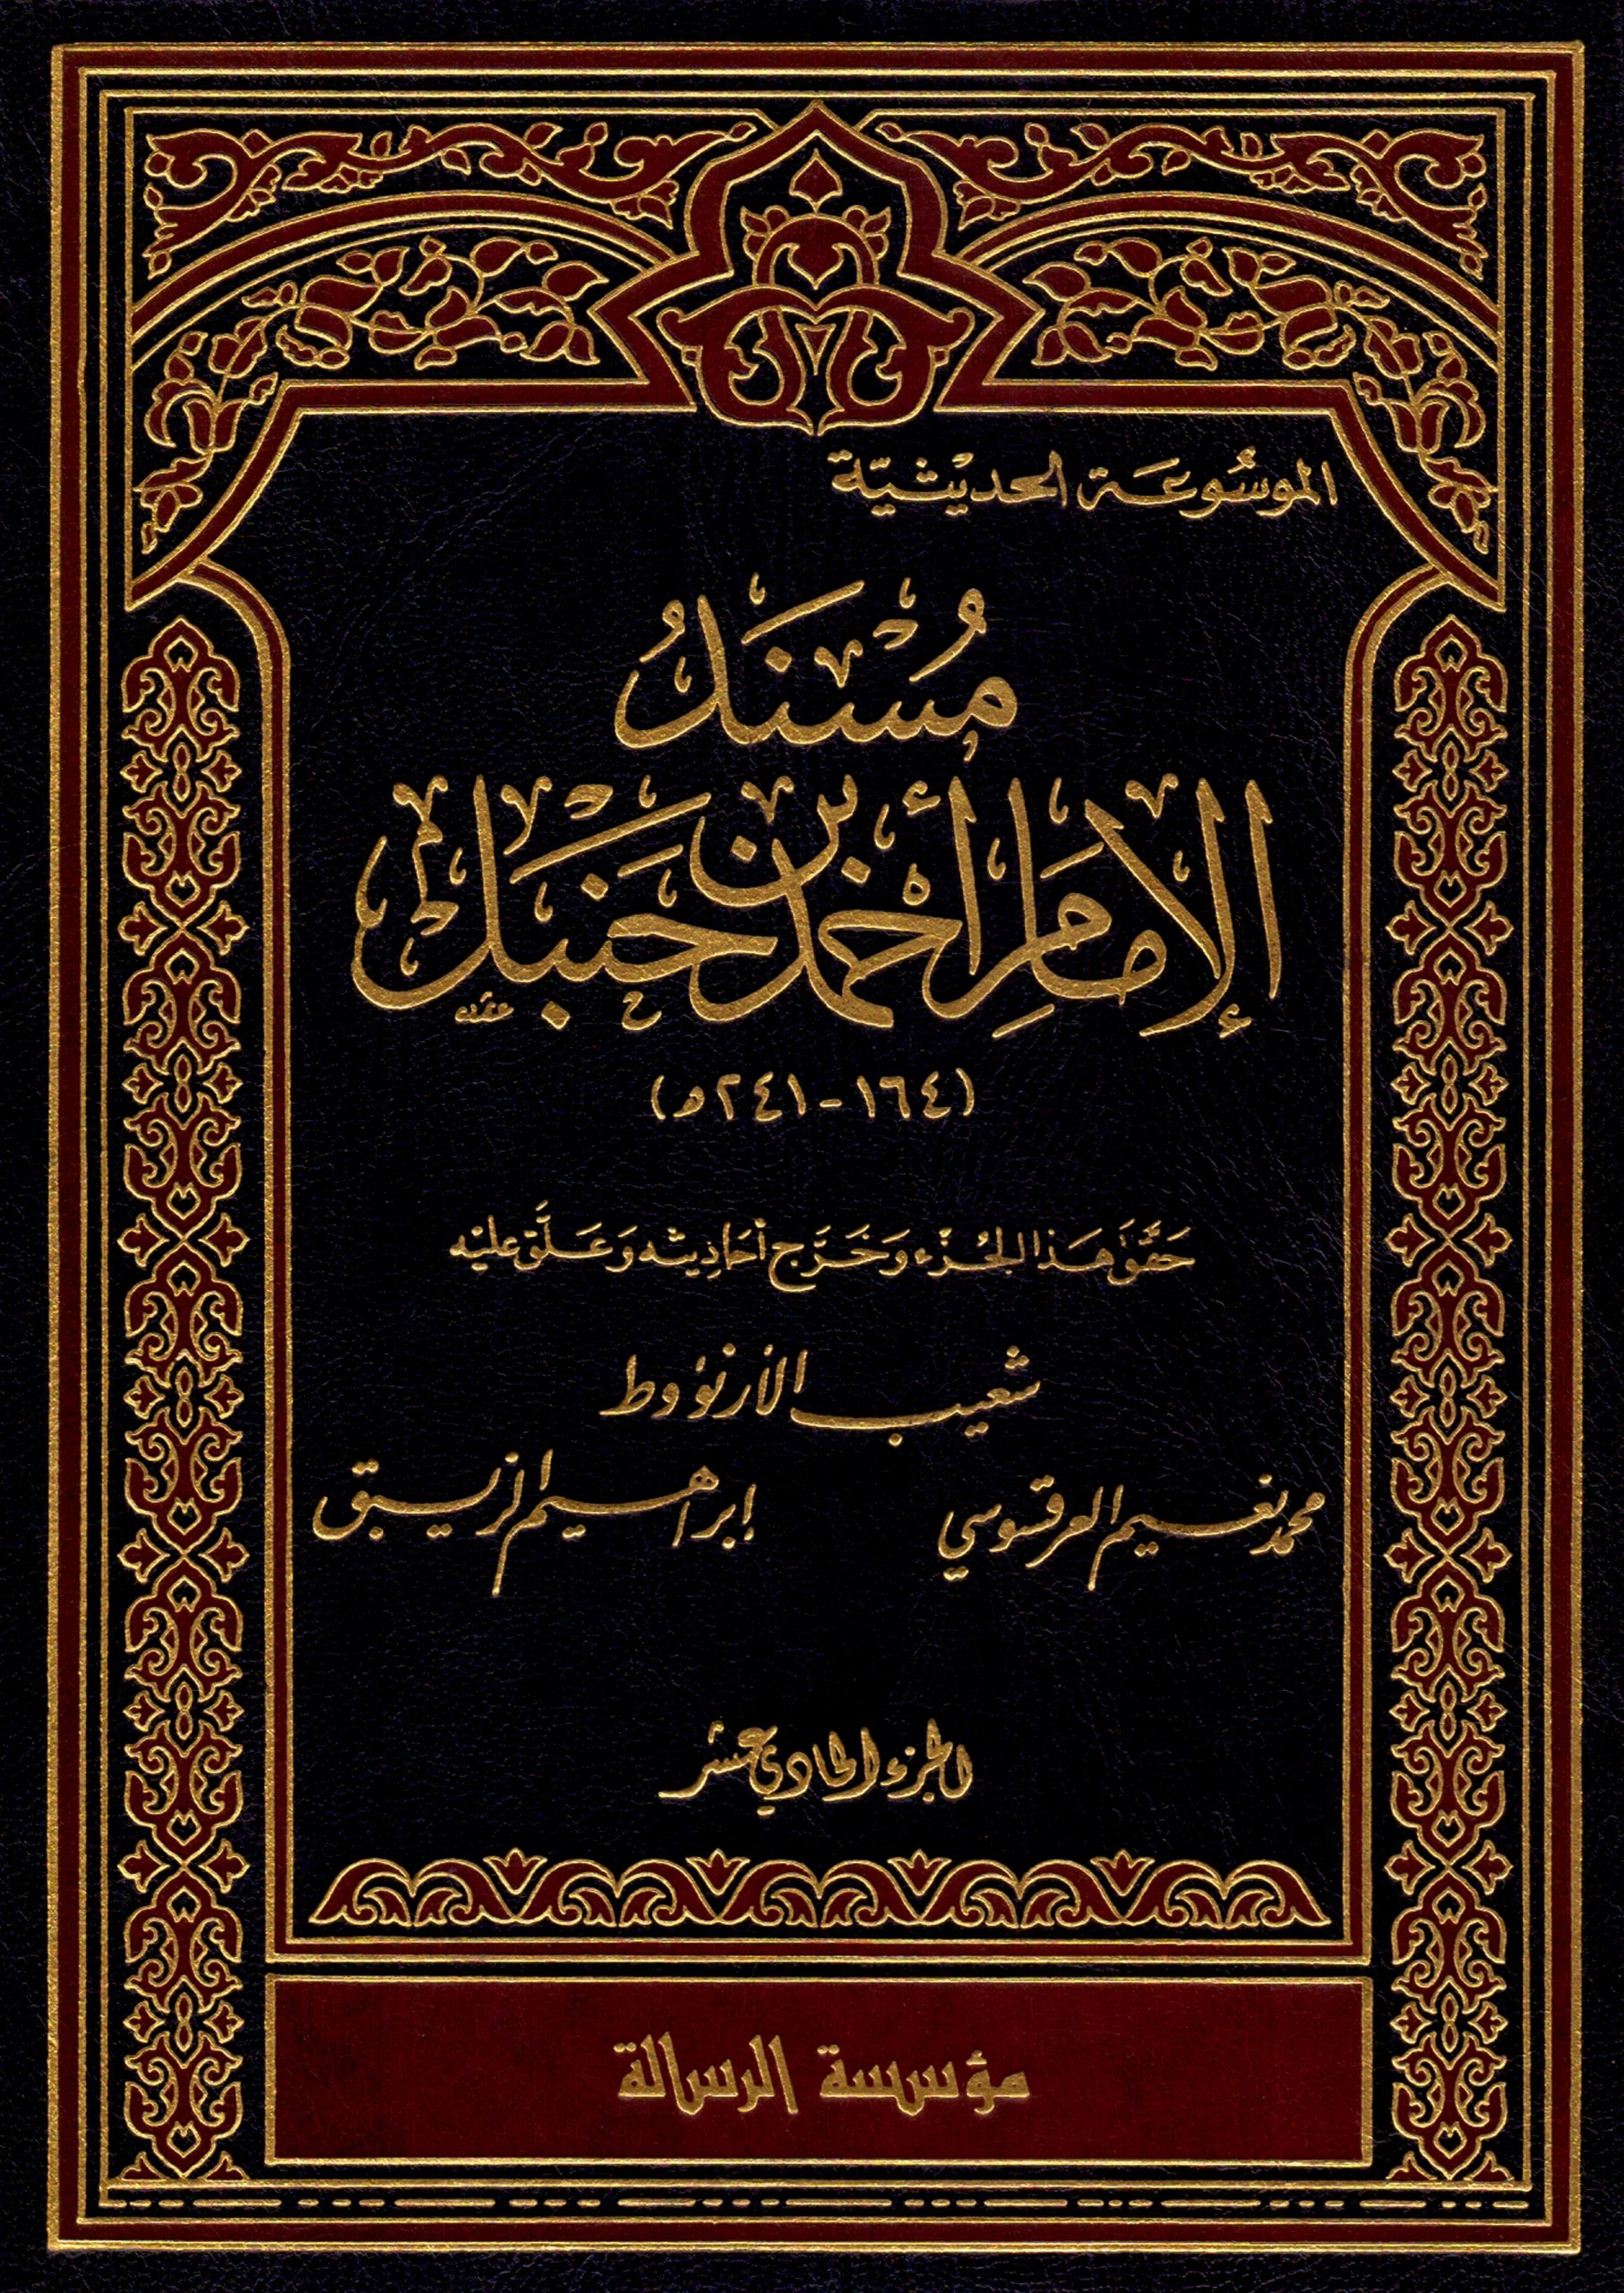 الموسُوعَة الحديْثيّة
مُسْنَدُ
الإمَامِ أحْمَد بن حَنبَل
(١٦٤ - ٢٤١ ه)
حَقّقَ هَذا الجُزْء وَخَرَّج أحَاذِيثه وَعَلَّق عليْه
شعيب الأرنؤوط
محمد نعيم العرقسوسي إبراهيم الزيبق
الجزء الحادي عشر
مؤسسة الرسالة